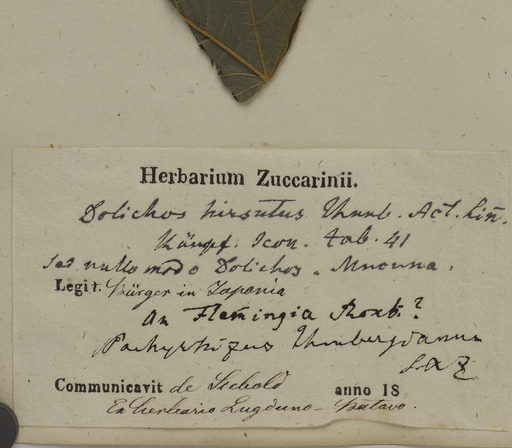 Herbarium Zuccarinii.
Dolichos hirsutus Thunb. Act. Lin.
Kämpf. Icon. tab. 41
sed nullo modo Dolichos. Mucuna.
Legit. Bürger in Japonia
An Flemingia Roxb.?
Pachyrhizus Thunbergianus
S. & Z
Communicavit de Siebold anno 18
Ex herbario Lugduno-Batavo.